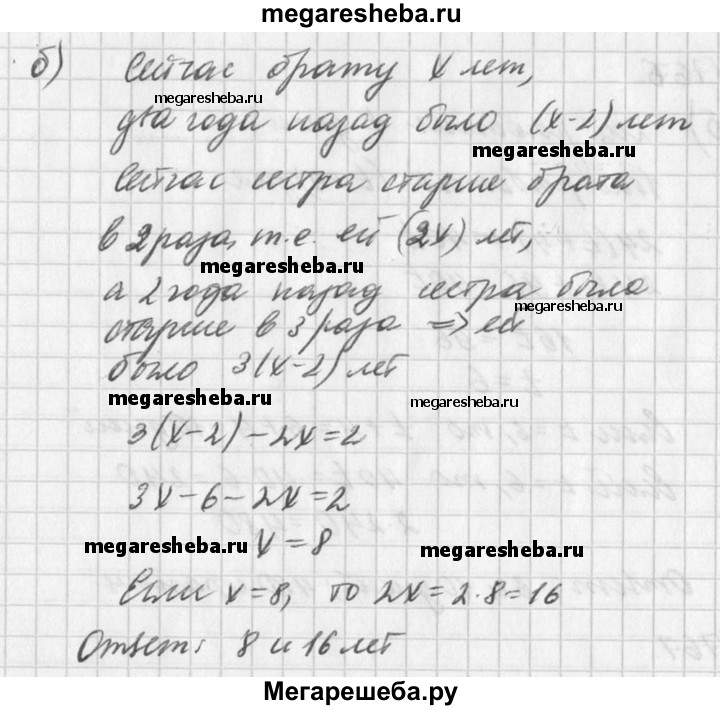 megaresheba.ru
б) Сейчас брату x лет,
megaresheba.ru
два года назад было (x-2) лет
megaresheba.ru
Сейчас сестра старше брата
в 2 раза, т.е. ей (2x) лет,
megaresheba.ru
а 2 года назад сестра была
megaresheba.ru
старше в 3 раза => ей
было 3(x-2) лет
megaresheba.ru
megaresheba.ru
3(x-2)-2x=2
3x-6-2x=2
megaresheba.ru
x=8
megaresheba.ru
Если x=8, то 2x=2·8=16
Ответ: 8 и 16 лет
Мегарешеба.ру